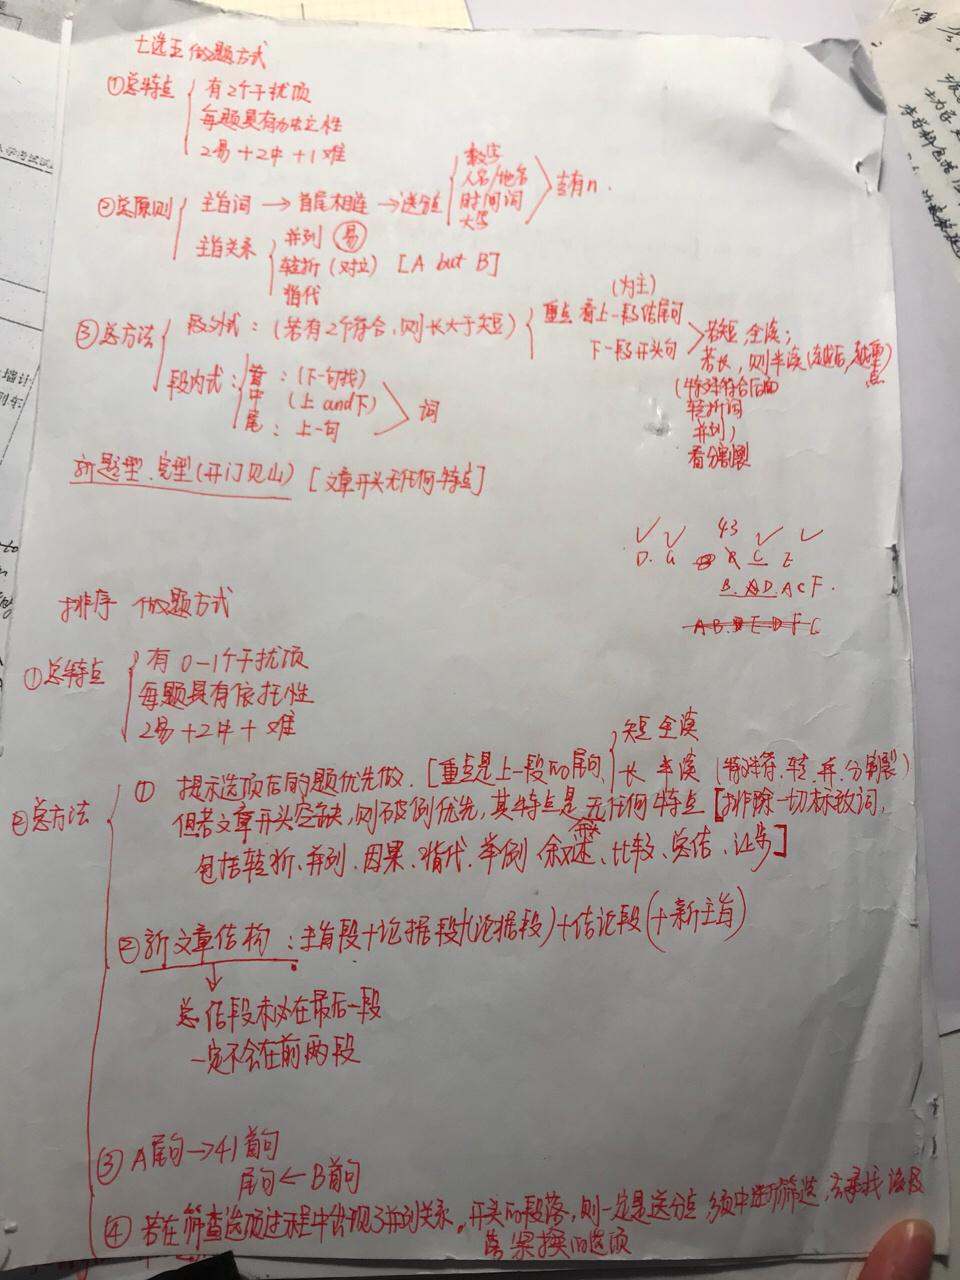 七选五 做题方式
①总特点 有2个干扰项
每题具有独立性
2易+2中+1难
②总原则 主旨词 → 首尾相连 → 送分点 数字
人名/地名
时间词
大写
主旨关系 并列 易
转折(对立) [A but B]
指代
③总方法 段外式: (若有2个符合,则长大于短) 重点看上一段结尾句 (为主)
下一段开头句
若短,全读;
若长,则半读(越后,越重点
(特殊符合后面
转折词
并列)
看分割裂
段内式: 首: (下一句找)
中 (上 and 下)
尾: 上一句
词
新题型.完型(开门见山) [文章开头无任何特点]
43
D. G C E
B. D. A C F.
A B. E D F C
排序 做题方式
①总特点 有0-1个干扰项
每题具有依托性
2易+2中+1难
②总方法
① 提示选项后的题优先做. [重点是上一段的尾句, 短 全读
长 半读 (特殊符.转.并.分割裂)
但若文章开头空缺,则破例优先,其特点是无任何特点[排除一切标致词,
包括转折、并列.因果.指代.举例 叙述、比较、总结、让步]
② 新文章结构: 主旨段+论据段+(论据段)+结论段(+新主旨)
总结段未必在最后一段
一定不会在前两段
③ A尾句→41首句
尾句←B首句
④ 若在筛查选项过程中出现并列关系。开头的段落,则一定是送分点 须中进行筛选,去寻找该段
落 的选项